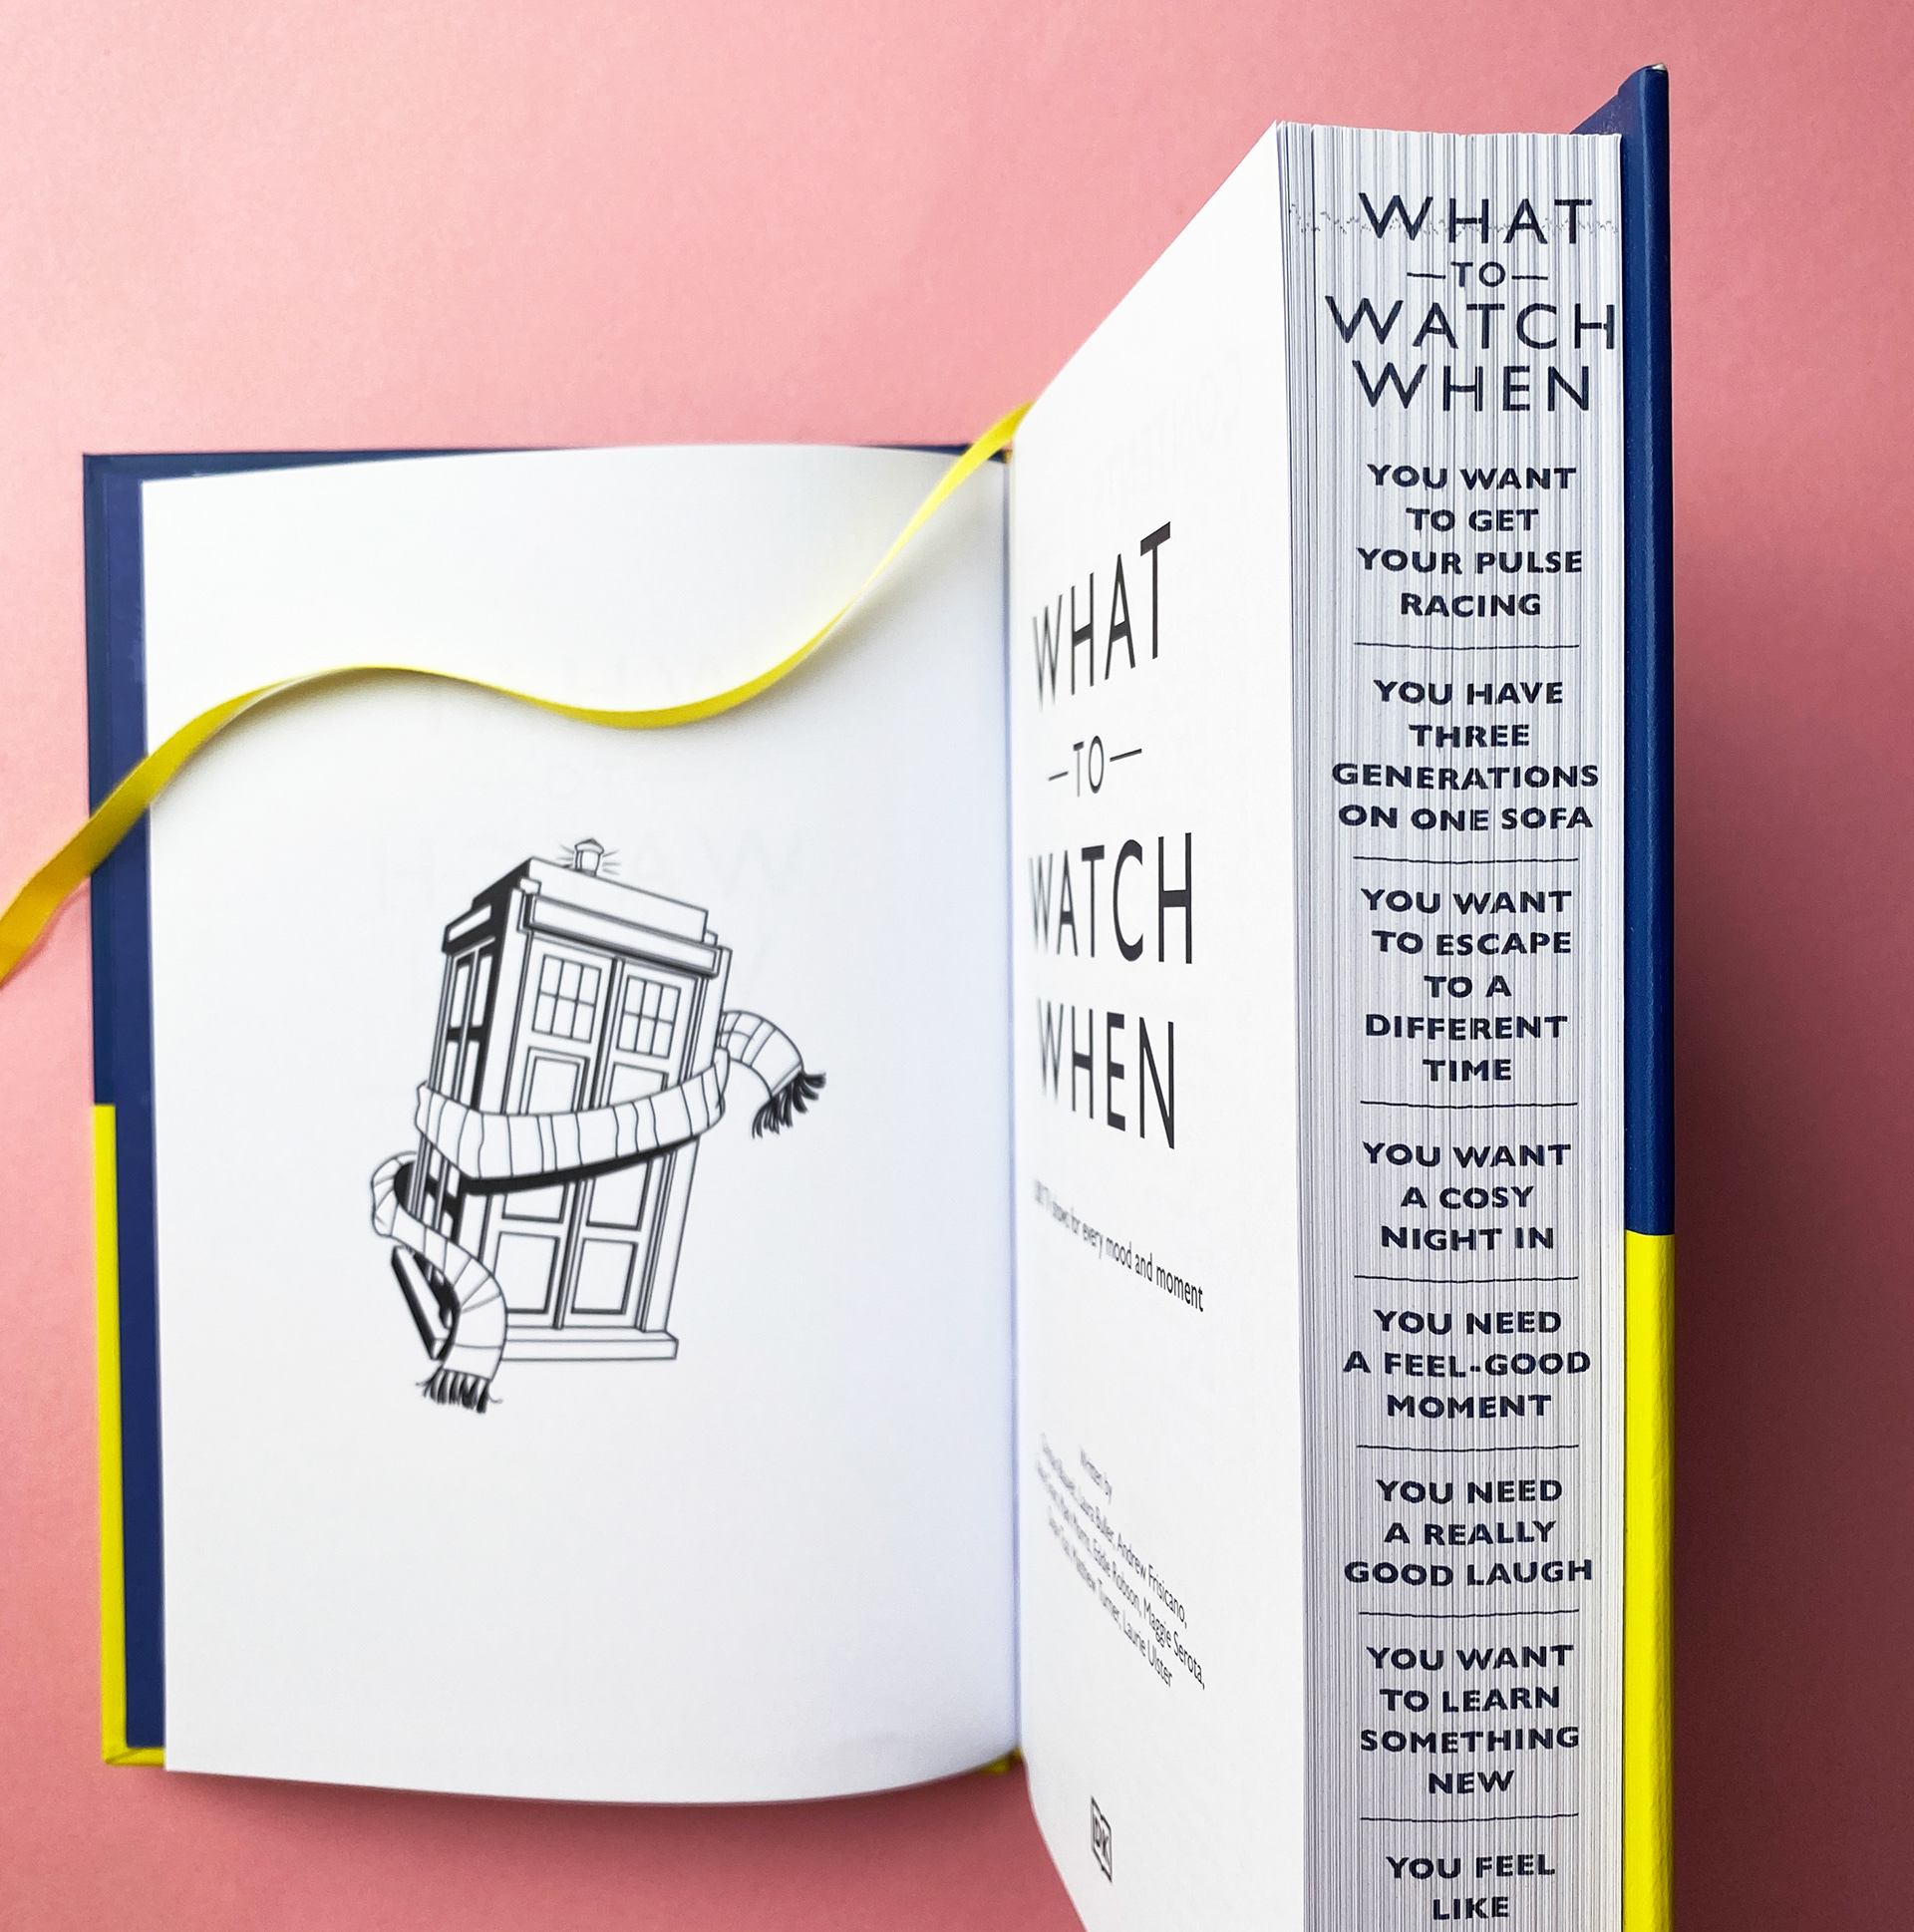 WHAT
—TO—
WATCH
WHEN
TV shows for every mood and moment
Written by
Laura Buller, Andrew Frisicano,
Eddie Robson, Maggie Serota,
Matthew Turner, Laurie Ulster
DK
WHAT
—TO—
WATCH
WHEN
YOU WANT
TO GET
YOUR PULSE
RACING
YOU HAVE
THREE
GENERATIONS
ON ONE SOFA
YOU WANT
TO ESCAPE
TO A
DIFFERENT
TIME
YOU WANT
A COSY
NIGHT IN
YOU NEED
A FEEL-GOOD
MOMENT
YOU NEED
A REALLY
GOOD LAUGH
YOU WANT
TO LEARN
SOMETHING
NEW
YOU FEEL
LIKE